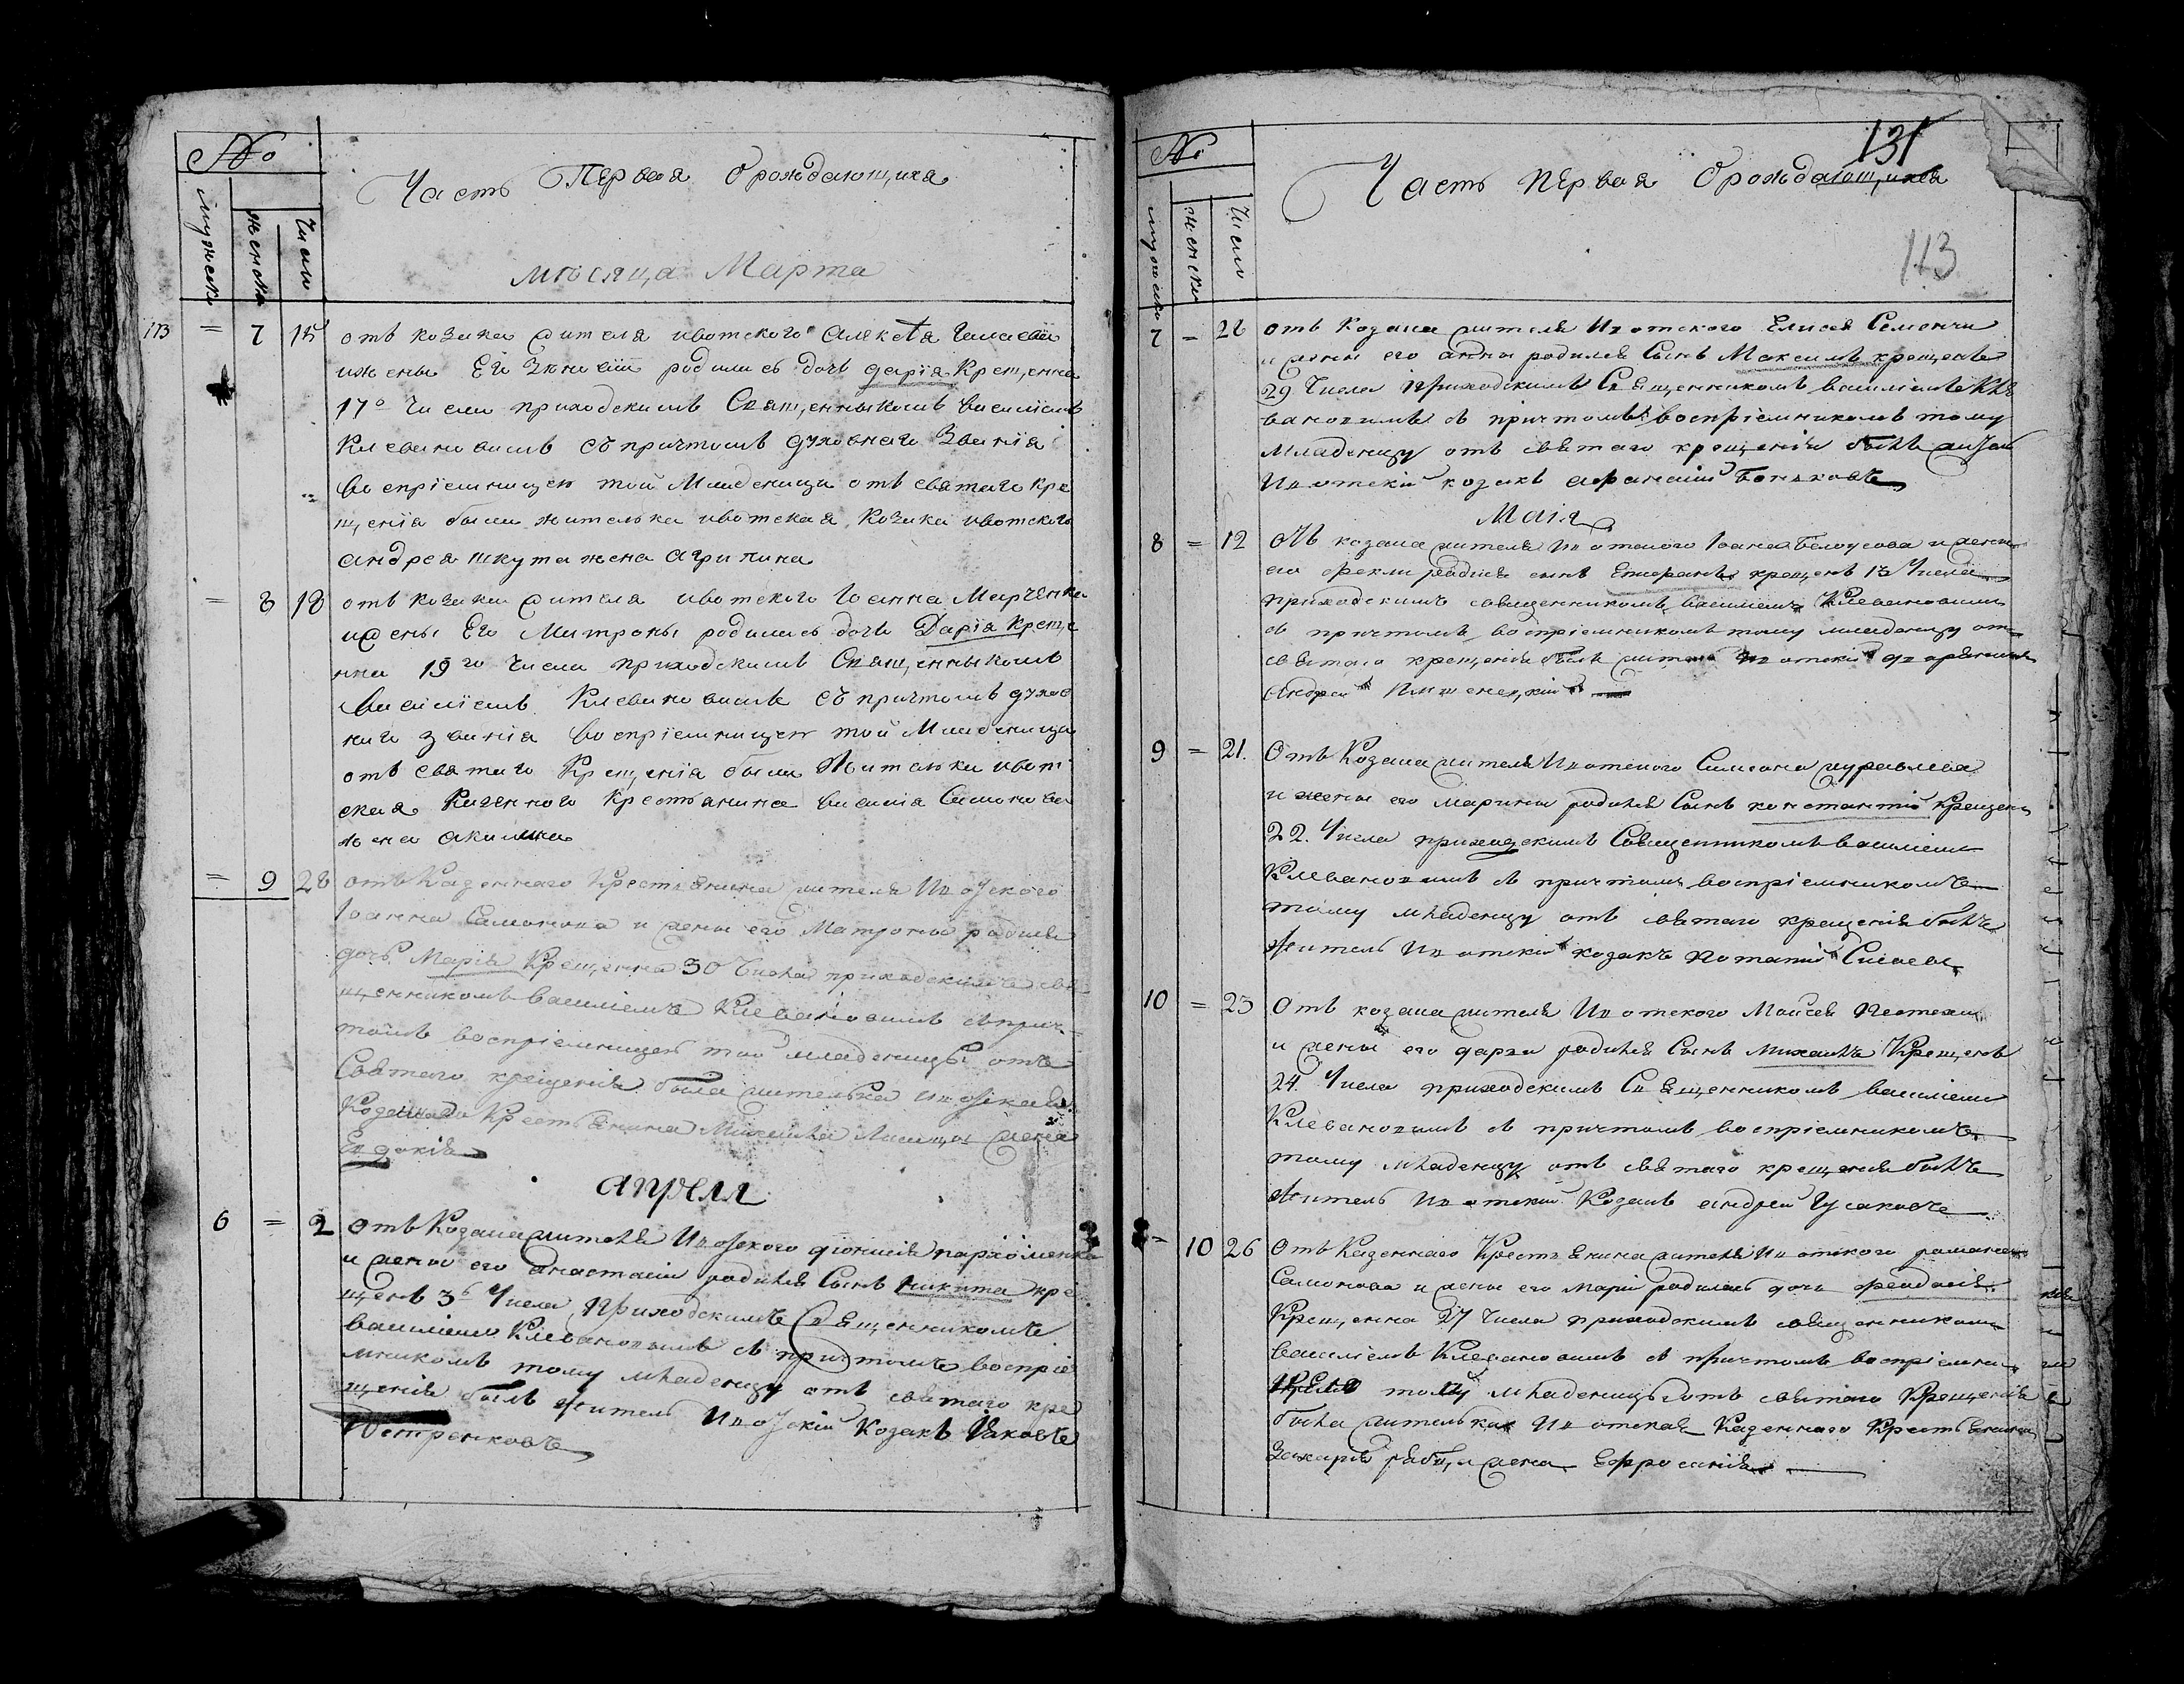 №
мужеска
женска
Число
Часть Первая О рождающихся
мѣсяца Марта
113
= 7 15 отъ козака жителя ивотского Алексѣя
ижены Его родилась дочь дарія Крещенна
17го числа приходскимъ Священныкомъ василіемъ
Клевановимъ съ причтомъ духовнаго Званія
воспріемницею той Младеницы отъ святаго Кре
щенія была жителька ивотская козака ивотского
андрея шкута жена агрипина
= 8 18 отъ козака жителя ивотского Іоанна Марченка
ижены Его Матроны родилась дочь Дарія Креще
нна 19го Числа приходскимъ Священныкомъ
василіемъ Клевановимъ съ причтомъ духов
наго званія воспріемницею той Младеницы
отъ святаго Крещенія была Жителька ивот
ская Казенного Крестьянина василія Самонова
жена акилина
= 9 28 отъ Казенного Крестьянина жителя Ивотского
Іоанна Самонова и жены его Матроны родилась
дочь Марія Крещенна 30 Числа приходскимъ свя
щенникомъ василіемъ Клевановимъ съ прич-
томъ воспріемницею той младеницы отъ
Святаго крещенія была жителька Ивотская
Козенного Крестьянина Михаила Лисицы жена
Евдокія
апреля
6 = 2 Отъ Козака жителя Ивотского діонисія пархоменка
и жены его Анастасіи родился Сынъ никита кре
щенъ 3го Числа Приходскимъ Священникомъ
василіемъ Клевановимъ съ причтомъ воспріе
мникомъ тому младенцу отъ святаго кре
щенія былъ житель Ивотскій Козакъ Іаковъ
Петренковъ
131
№
мужеска
женска
Число
Часть первая О рождающихся
113
7 = 28 отъ Козака жителя Ивотского Елисея Семенчи
и жены его анны родился Сынъ Максимъ крещенъ
29 Числа приходскимъ Священникомъ василіемъ Кле
вановимъ съ причтомъ воспріемникомъ тому
Младенцу отъ святаго крещенія былъ житель
Ивотскій козакъ афанасій
Маія
8 = 12 отъ козака жителя Ивотского Іоана Белоусова и жены
его феклы родился сынъ Епифанъ крещенъ 13 Числа
приходскимъ священникомъ василіемъ Клевановимъ
съ причтомъ воспріемникомъ тому младенцу отъ
святаго крещенія былъ житель Ивотскій дворянинъ
Андрей
9 = 21. Отъ Козака жителя Ивотского Симеона журавлева
и жены его Марины родился Сынъ константій крещенъ
22. Числа приходскимъ Священникомъ василіемъ
Клевановимъ съ причтомъ воспріемникомъ
тому младенцу отъ святаго крещенія былъ
житель Ивотскій козакъ потапій
10 = 23 Отъ козака жителя Ивотского Моисея
и жены его дарьи родился Сынъ Михаилъ Крещенъ
24. Числа приходскимъ Священникомъ василіемъ
Клевановимъ съ причтомъ воспріемникомъ
тому младенцу отъ святаго крещенія былъ
житель Ивотскій Козакъ андрей Гусаковъ
= 10 26 Отъ Казенного Крестьянина жителя Ивотского романа
Самонова и жены его Маріи родилась дочь феодосія
Крещенна 27 Числа приходскимъ священникомъ
василіемъ Клевановимъ съ причтомъ воспріемни
цею той младеницы отъ святаго Крещенія
была жителька Ивотская Казенного Крестьянина
Захарія жена Ефросинія